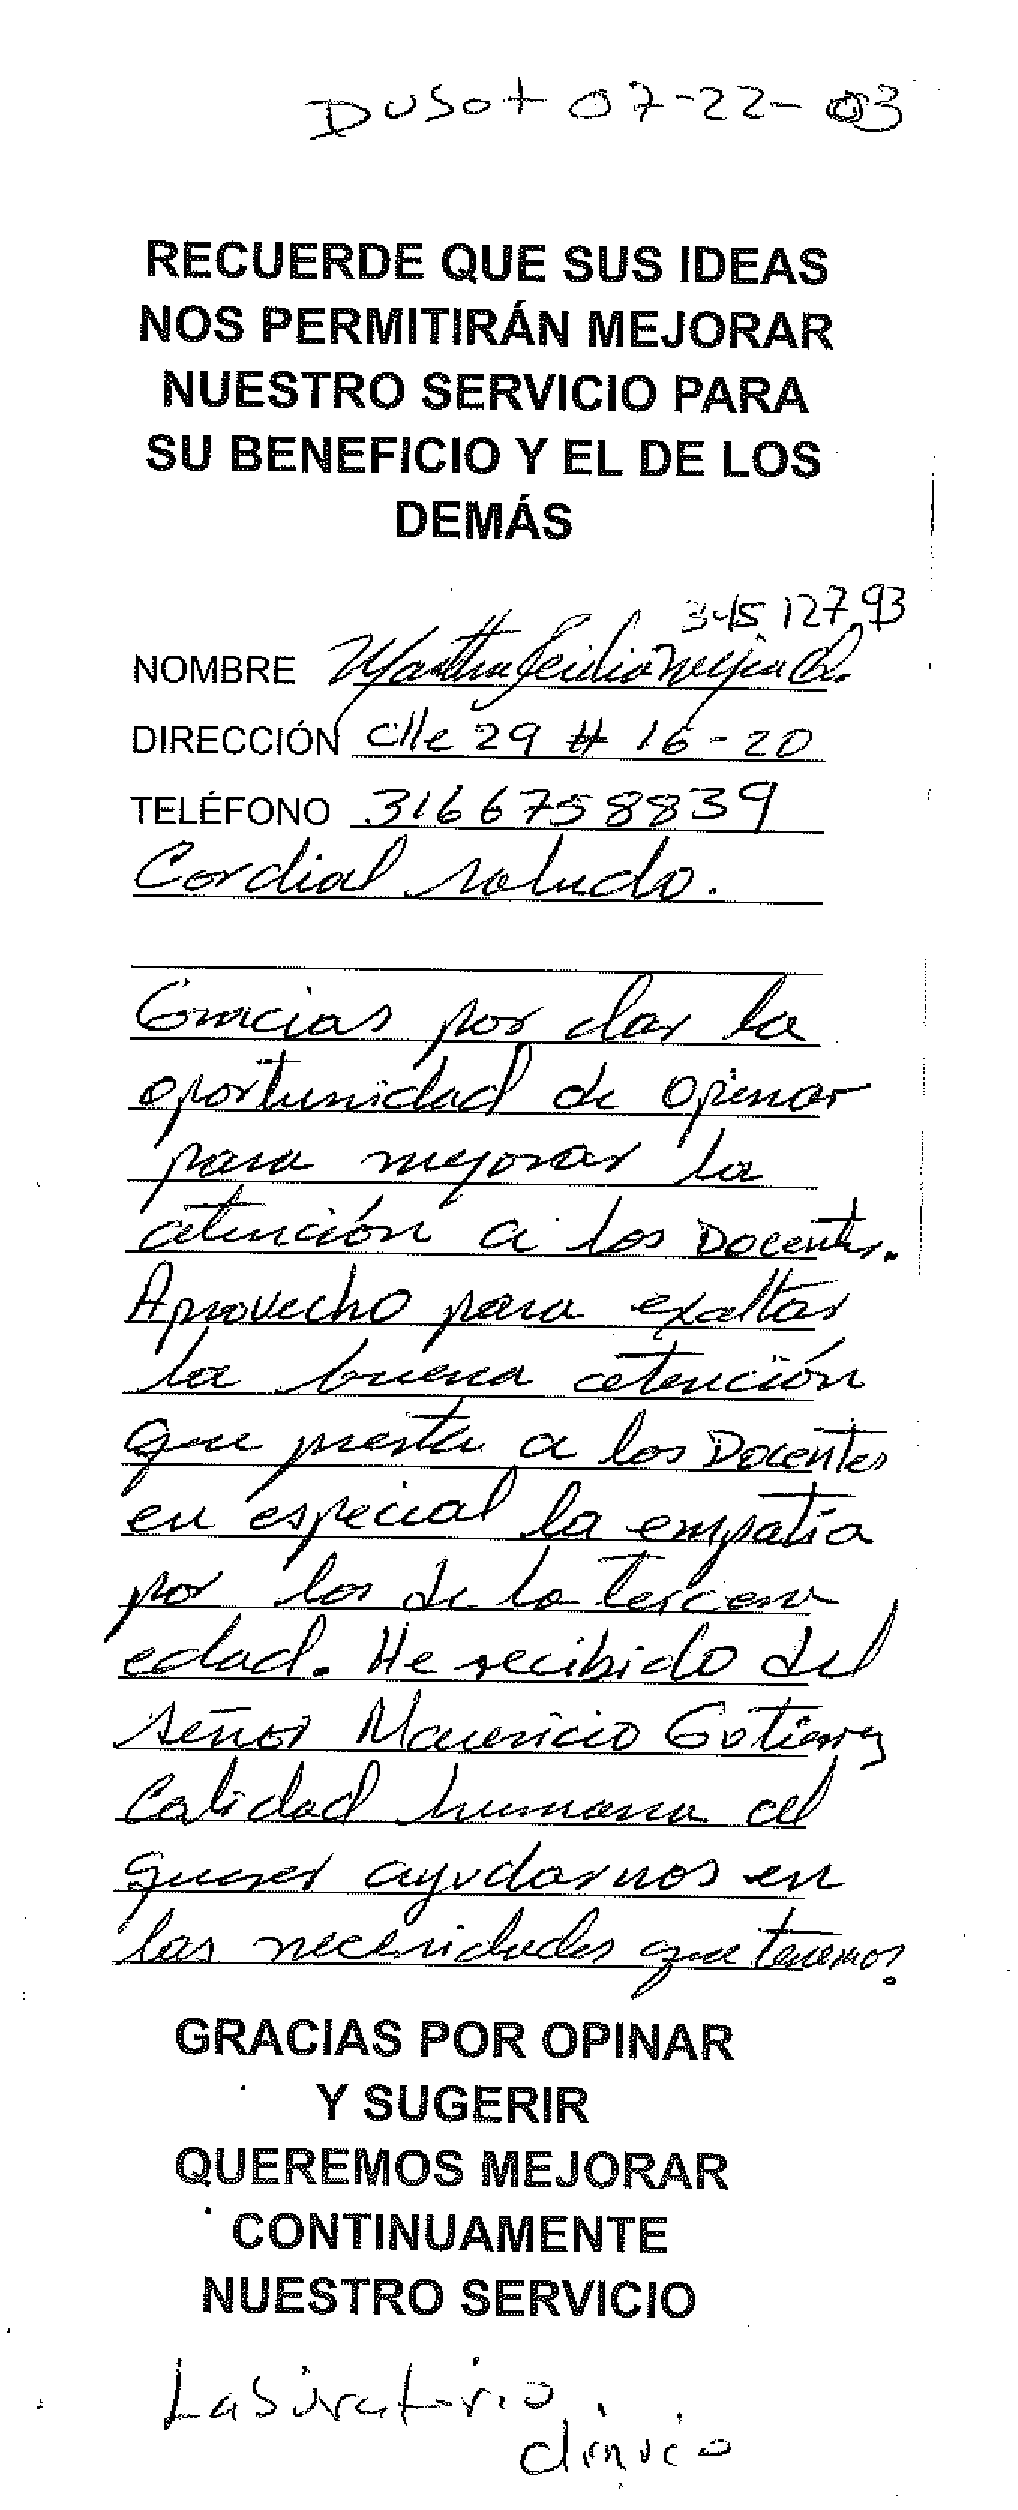 Dusot 07-22-03
RECUERDE QUE SUS IDEAS
NOS PERMITIRÁN MEJORAR
NUESTRO SERVICIO PARA
SU BENEFICIO Y EL DE LOS
DEMÁS
34512793
NOMBRE Martha Leidia Mejia Q.
DIRECCIÓN Clle 29 # 16-20
TELÉFONO 3166758839
Cordial saludo.
Gracias por dar la
oportunidad de opinar
para mejorar la
atención a los Docentes.
Aprovecho para exaltar
la buena atención
que presta a los Docentes
en especial la empatía
por los de la tercera
edad. He recibido del
señor Mauricio Gutierrez
Calidad humana al
querer ayudarnos en
las necesidades que tenemos.
GRACIAS POR OPINAR
Y SUGERIR
QUEREMOS MEJORAR
CONTINUAMENTE
NUESTRO SERVICIO
Laboratorio
clínico